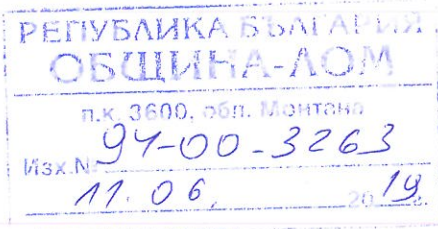 РЕПУБЛИКА БЪЛГАРИЯ
ОБЩИНА-ЛОМ
п.к. 3600, обл. Монтана
Изх.№ 94-00-3263
11.06. 2019 г.